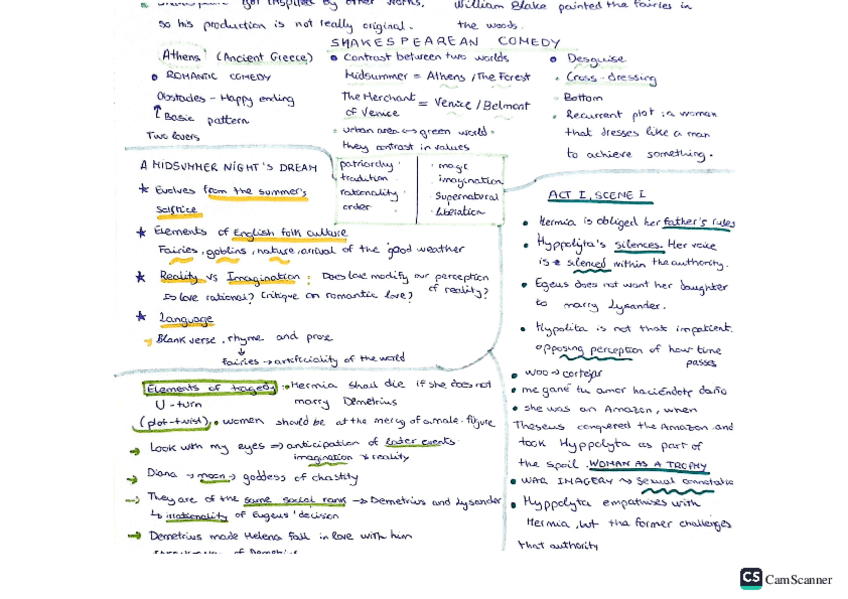 got inspired by other works,
so his production is not really original.
William Blake painted the fairies in
the woods.
SHAKESPEAREAN COMEDY
Athens (Ancient Greece)
ROMANTIC COMEDY
Obstacles - Happy ending
↑ Basic pattern
Two lovers
Contrast between two worlds
Midsummer = Athens / The Forest
The Merchant
of Venice = Venice / Belmont
urban area ↔ green world
they contrast in values
patriarchy
tradition
rationality
order
magic
imagination
Supernatural
liberation
Desguise
Cross-dressing
Bottom
Recurrent plot: a woman
that dresses like a man
to achieve something.
A MIDSUMMER NIGHT'S DREAM
★ Evolves from the summer's
solstice
★ Elements of English folk culture
Fairies, goblins, nature, arrival of the good weather
★ Reality vs Imagination: Does love modify our perception
of reality?
Is love rational? Critique on romantic love?
★ Language
Blank verse, rhyme and prose
↓
fairies → artificiality of the world
Elements of tragedy: Hermia shall die if she does not
marry Demetrius
U-turn
(plot-twist) • women should be at the mercy of a male figure
→ Look with my eyes ⇒ anticipation of later events
imagination vs reality
→ Diana → moon → goddess of chastity
→ They are of the same social rank → Demetrius and Lysander
↳ irrationality of Eugeus' decision
→ Demetrius made Helena fall in love with him
of Demetrius
ACT I, SCENE I
• Hermia is obliged her father's rules
• Hyppolyta's silences. Her voice
is silenced within the authority.
• Egeus does not want her daughter
to marry Lysander.
• Hypolita is not that impatient.
opposing perception of how time
passes
• woo → cortejar
• me gané tu amor haciéndote daño
• she was an Amazon, when
Theseus conquered the Amazon and
took Hyppolyta as part of
the spoil. WOMAN AS A TROPHY
• WAR IMAGERY → Sexual connotatio
• Hyppolyta empathises with
Hermia, but the former challenges
that authority
CS CamScanner